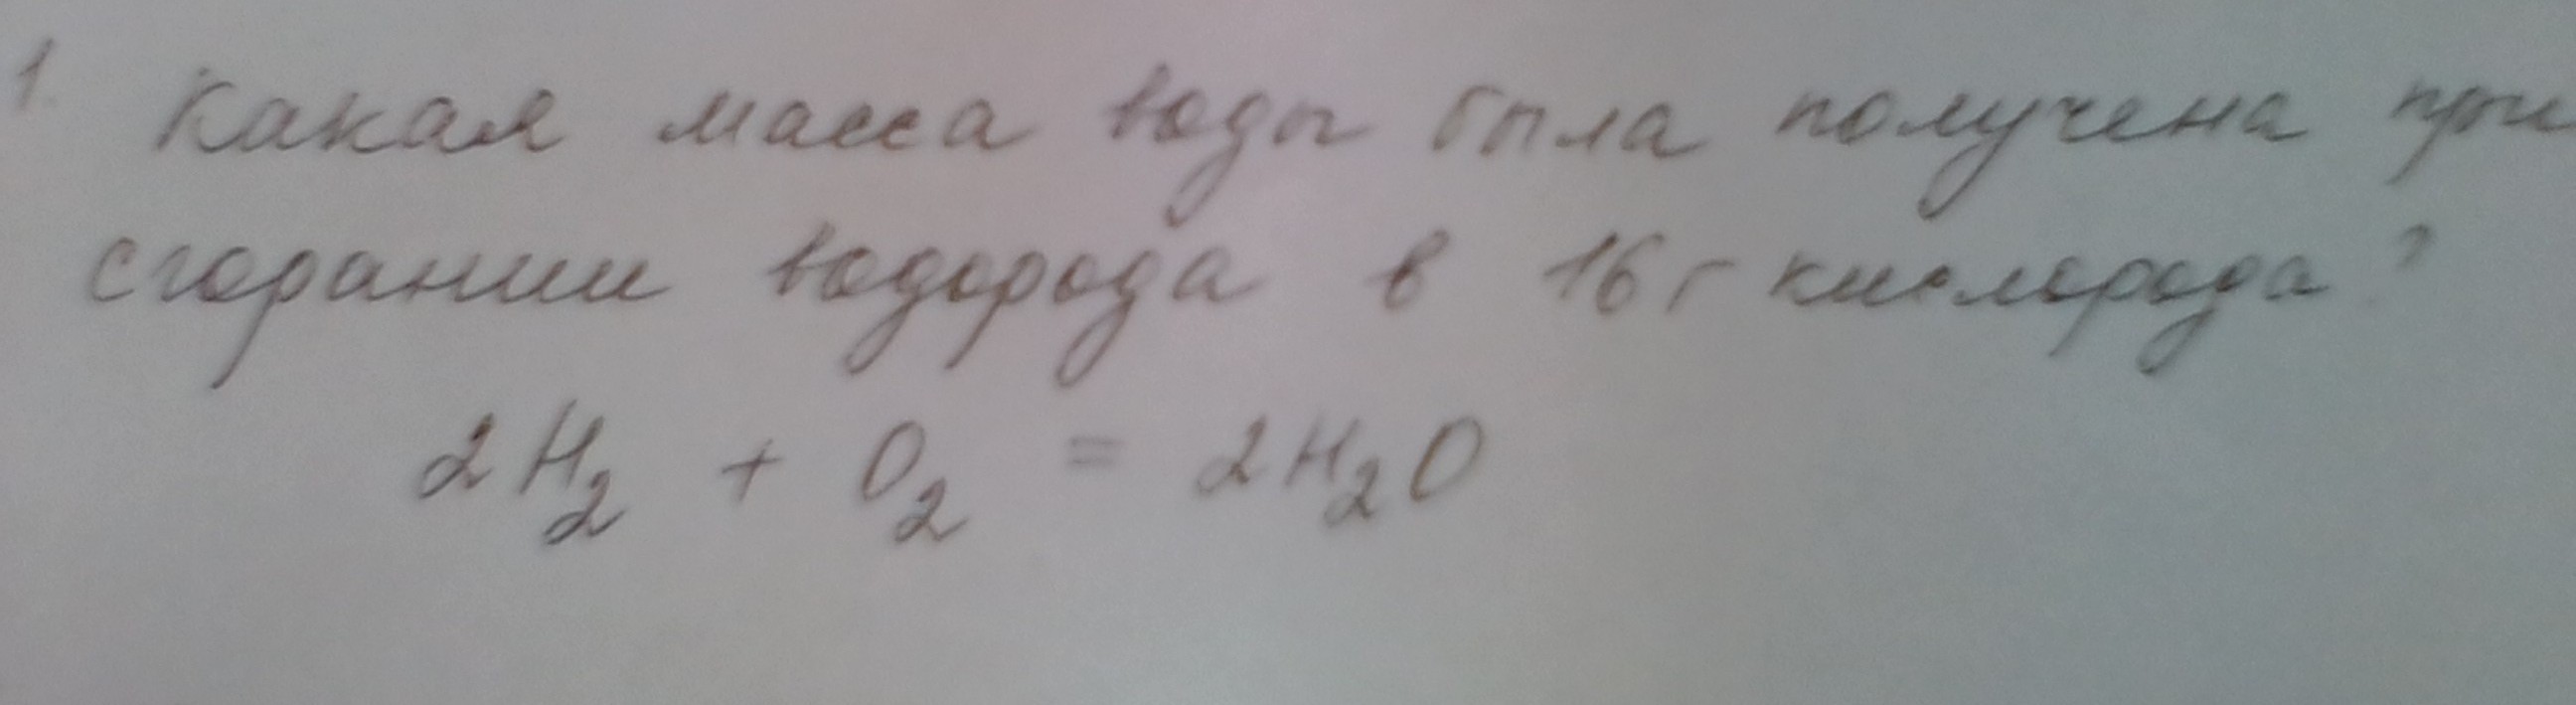 1. Какая масса воды была получена при
сгорании водорода в 16 г кислорода?
2H₂ + O₂ = 2H₂O